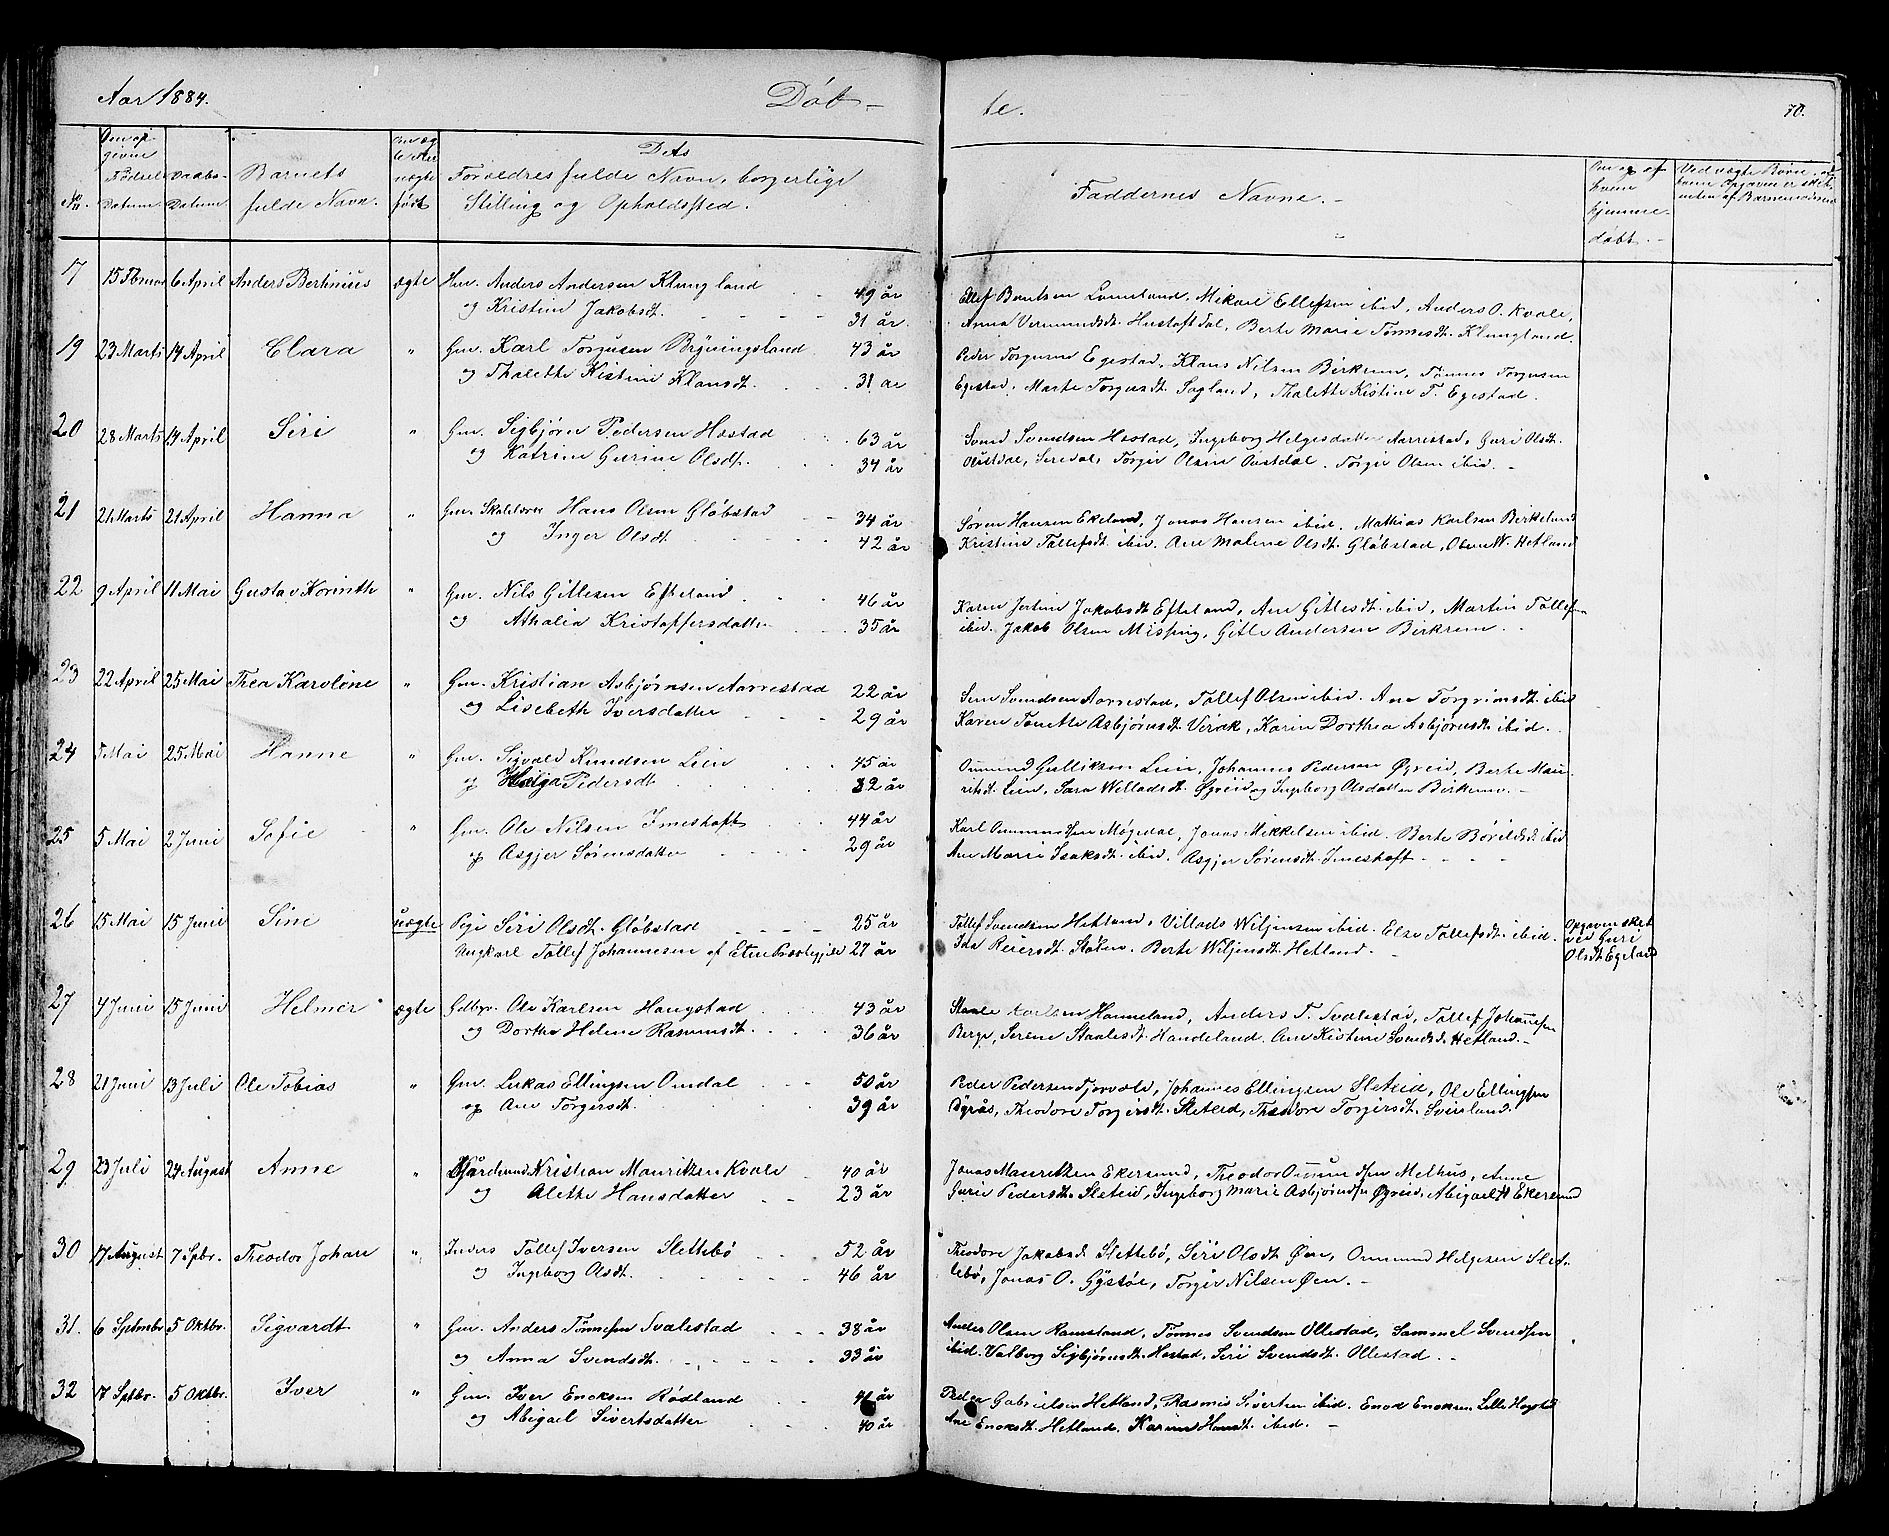 Aar 1884.
Døb-
te.
70.
No.
Den op-
givne
Fødsels
Datum.
Daabs-
Datum.
Barnets
fulde Navn.
Om æg
te eller
uægte
født
Dets
Forældres fulde Navn, borgerlige
Stilling og Opholdssted.
Faddernes Navne.
hvem
hjemme-
døbt.
Ved uægte Børn, af
hvem Opgaven er sket,
enten af Barnemoderen
17 15 Febnuar 6 April Anders Bertinius ægte Gm. Anders Andersen Klungland 49 år
og Kristine Jakobsdt. 31 år.
Ellef Bentsen Lomeland. Mikael Ellefsen ibid, Anders O. Kvale,
Anna Vermundsdt. Hustoft dal, Berte Marie Tønnesdt. Klungland.
19 23 Marts 14 April Clara " Gm. Karl Torgusen Bryningsland 43 år
og Thalette Kistine Klausdt. 31 år
Peder Torgusen Egestad, Klaus Nilsen Birkrem, Tønnes Torgusen
Egestad. Marte Torgusdt. Sagland, Thalette Kistine T. Egestad.
20 28 Marts 14 April Siri " Gm. Sigbjørn Pedersen Hæstad 63 år
og Katrine Gurine Olsdt. 34 år
Svend Svendsen Hæstad, Ingeborg Helgesdatter Aarrestad, Guri Olsdt.
Oustdal, Siredal, Torger Olsen Oustdal. Torger Olsen ibid.
21 21 Marts 21 April Hanna " Gm. Skolelærer Hans Olsen Gløbstad 34 år
og Inger Olsdt. 42 år
Søren Hansen Ekeland, Jonas Hansen ibid. Mathias Karlsen Birkeland
Kristine Tollefsdt. ibid. Ane Malene Olsdt. Gløbstad, Oline W. Hetland
22 9 April 11 Mai Gustav Korinth " Gm. Nils Gitlesen Efteland 46 år
og Athalia Kristoffersdatter 35 år
Karen Jertine Jakobsdt. Efteland, Ane Gitlesdt. ibid, Martin Tollefsen
ibid. Jakob Olsen Misfing, Gitle Andersen Birkrem.
23 22 April 25 Mai Thea Karoline " Gm. Kristian Asbjørnsen Aarrestad 22 år
og Lisebeth Iversdatter 29 år
Svend Svendsen Aarrestad, Tollef Olsen ibid. Ane Torgrimsdt. ibid
Karen Tonette Asbjørnsdt. Verak, Karen Dorthea Asbjørnsdt. ibid.
24 5 Mai 25 Mai Hanne " Gm. Sigvald Knudsen Lien 45 år
og Helga Pedersdt. 32 år
Ommund Gulliksen Lien, Johannes Pedersen Øgreid, Berte Mau-
ritsdt. Lien, Sara Willadsdt. Øgreid og Ingeborg Olsdatter Birkrem.
25 5 Mai 2 Juni Sofie " Gm. Ole Nilsen Imeshoft 44 år
og Asgjer Sørensdatter 29 år
Karl Ommundsen Møgedal, Jonas Mikkelsen ibid. Berte Børildsdt. ibid
Ane Marie Isaksdt. ibid. Asgjer Sørensdt. Imeshoft
26 15 Mai 15 Juni Sine uægte Pige Siri Olsdt. Gløbstad 25 år
Ungkarl Tollef Johannesen af Etne Prestegjeld 27 år
Tollef Svendsen Hetland, Villads Wiljensen ibid. Else Tollefsdt. ibid.
Ida Reiersdt. Støten. Berte Wiljensdt. Hetland.
Opgaven sket
ved Guri
Olsdt. Egeland
27 4 Juni 15 Juni Helmer ægte Gdbr. Ole Karlsen Haugstad 43 år
og Dorthe Helene Rasmusdt. 36 år
Staale Karlsen Hanneland, Anders T. Svalestad, Tollef Johannesen
Berge, Serene Staalesdt. Handeland. Ane Kistine Svendsdt. Hetland.
28 21 Juni 13 Juli Ole Tobias " Gm. Lukas Ellingsen Omdal 50 år
og Ane Torgersdt. 39 år
Peder Pedersen Gjorvald, Johannes Ellingsen Sleteid, Ole Ellingsen
Bgrås, Theodore Torgersdt. Sleteid, Theodore Torgersdt. Svinland.
29 23 Juli 24 August Anne " Gårdmand Kristian Mauritzen Kvale 40 år
og Alette Hansdatter 23 år
Jonas Mauritzen Ekersund, Theodor Ommundsen Melhus, Anne
Gurie Pedersdt. Sleteid, Ingeborg Marie Asbjørnsdt. Øgreid, Abigael H. Ekersund
30 17 August 7 Spbr. Theodor Johan " Inders Tollef Iversen Slettebø 52 år
og Ingeborg Olsdt. 46 år
Theodore Jakobsd. Slettebø, Siri Olsdt. Øen, Ommund Helgesen Slet-
tebø, Jonas O. Gystøl, Torger Nilsen Øen.
31. 6 Sptmbr 5 Oktbr. Sigvardt " Gm. Anders Tønnesen Svalestad 38 år
og Anna Svendsdt. 33 år
Anders Olsen Ramsland, Tønnes Svendsen Ollestad, Sammel Svendsen
ibid. Valborg Sigbjørnsdt. Hæstad, Siri Svendsdt. Ollestad.
32 17 Sptbr. 5 Oktbr. Iver " Gm. Iver Enoksen Rødland 41 år
og Abigael Sivertsdatter 40 år
Peder Gabrielsen Hetland, Rasmus Sivertsen ibid. Enok Enoksen Lille Haystad
Ane Enoksdt. Hetland. Karine Hansdt. ibid.